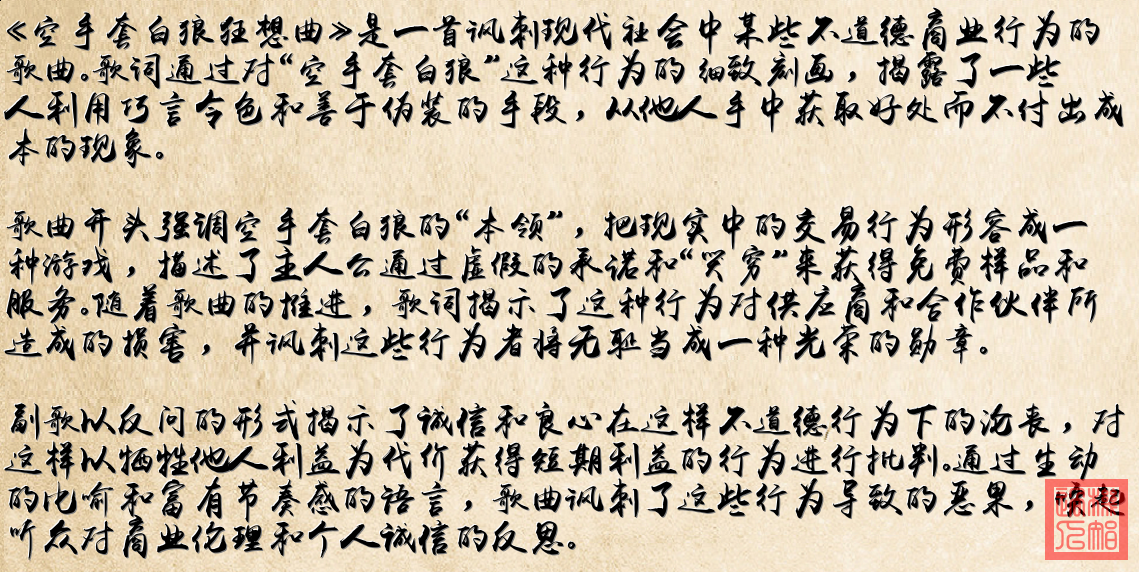 《空手套白狼狂想曲》是一首讽刺现代社会中某些不道德商业行为的
歌曲。歌词通过对“空手套白狼”这种行为的细致刻画，揭露了一些
人利用巧言令色和善于伪装的手段，从他人手中获取好处而不付出成
本的现象。
歌曲开头强调空手套白狼的“本领”，把现实中的交易行为形容成一
种游戏，描述了主人公通过虚假的承诺和“哭穷”来获得免费样品和
服务。随着歌曲的推进，歌词揭示了这种行为对供应商和合作伙伴所
造成的损害，并讽刺这些行为者将无耻当成一种光荣的勋章。
副歌以反问的形式揭示了诚信和良心在这样不道德行为下的沦丧，对
这样以牺牲他人利益为代价获得短期利益的行为进行批判。通过生动
的比喻和富有节奏感的语言，歌曲讽刺了这些行为导致的恶果，唤起
听众对商业伦理和个人诚信的反思。